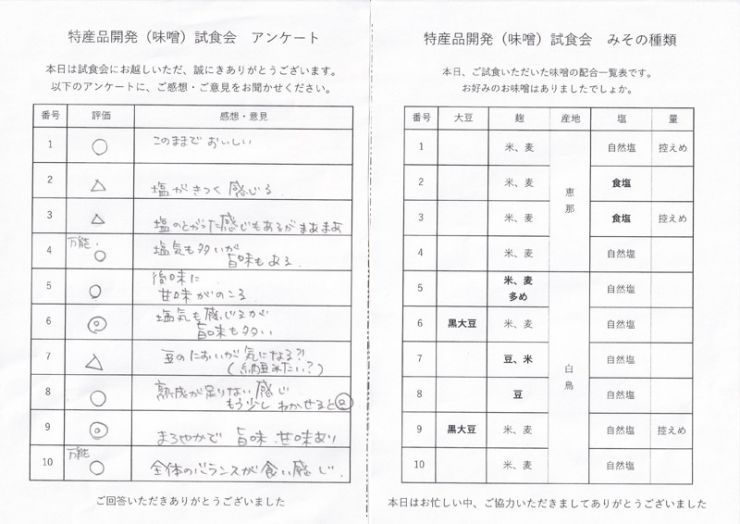 特産品開発（味噌）試食会　アンケート
本日は試食会にお越しいただ、誠にきありがとうございます。
以下のアンケートに、ご感想・ご意見をお聞かせください。
番号 評価 感想・意見
1 ○ このままでおいしい
2 △ 塩がきつく感じる
3 △ 塩のとがった感じもあるがまあまあ
4 万能. ○ 塩気も多いが
旨味もある
5 ○ 後味に
甘味がのこる
6 ◎ 塩気も感じるが
旨味も多い
7 △ 豆のにおいが気になる?!
(納豆みたい?)
8 ○ 熟成が足りない感じ
もう少しわかせると◎
9 ◎ まろやかで 旨味 甘味あり
10 万能 ○ 全体のバランスが 感じ.
ご回答いただきありがとうございました
特産品開発（味噌）試食会　みその種類
本日、ご試食いただいた味噌の配合一覧表です。
お好みのお味噌はありましたでしょか。
番号 大豆 麹 産地 塩 量
1 米、麦 自然塩 控えめ
2 米、麦 食塩
恵那
3 米、麦 食塩 控えめ
4 米、麦 自然塩
5 米、麦多め 自然塩
6 黒大豆 米、麦 自然塩
7 豆、米 自然塩
白鳥
8 豆 自然塩
9 黒大豆 米、麦 自然塩 控えめ
10 米、麦 自然塩
本日はお忙しい中、ご協力いただきましてありがとうございました